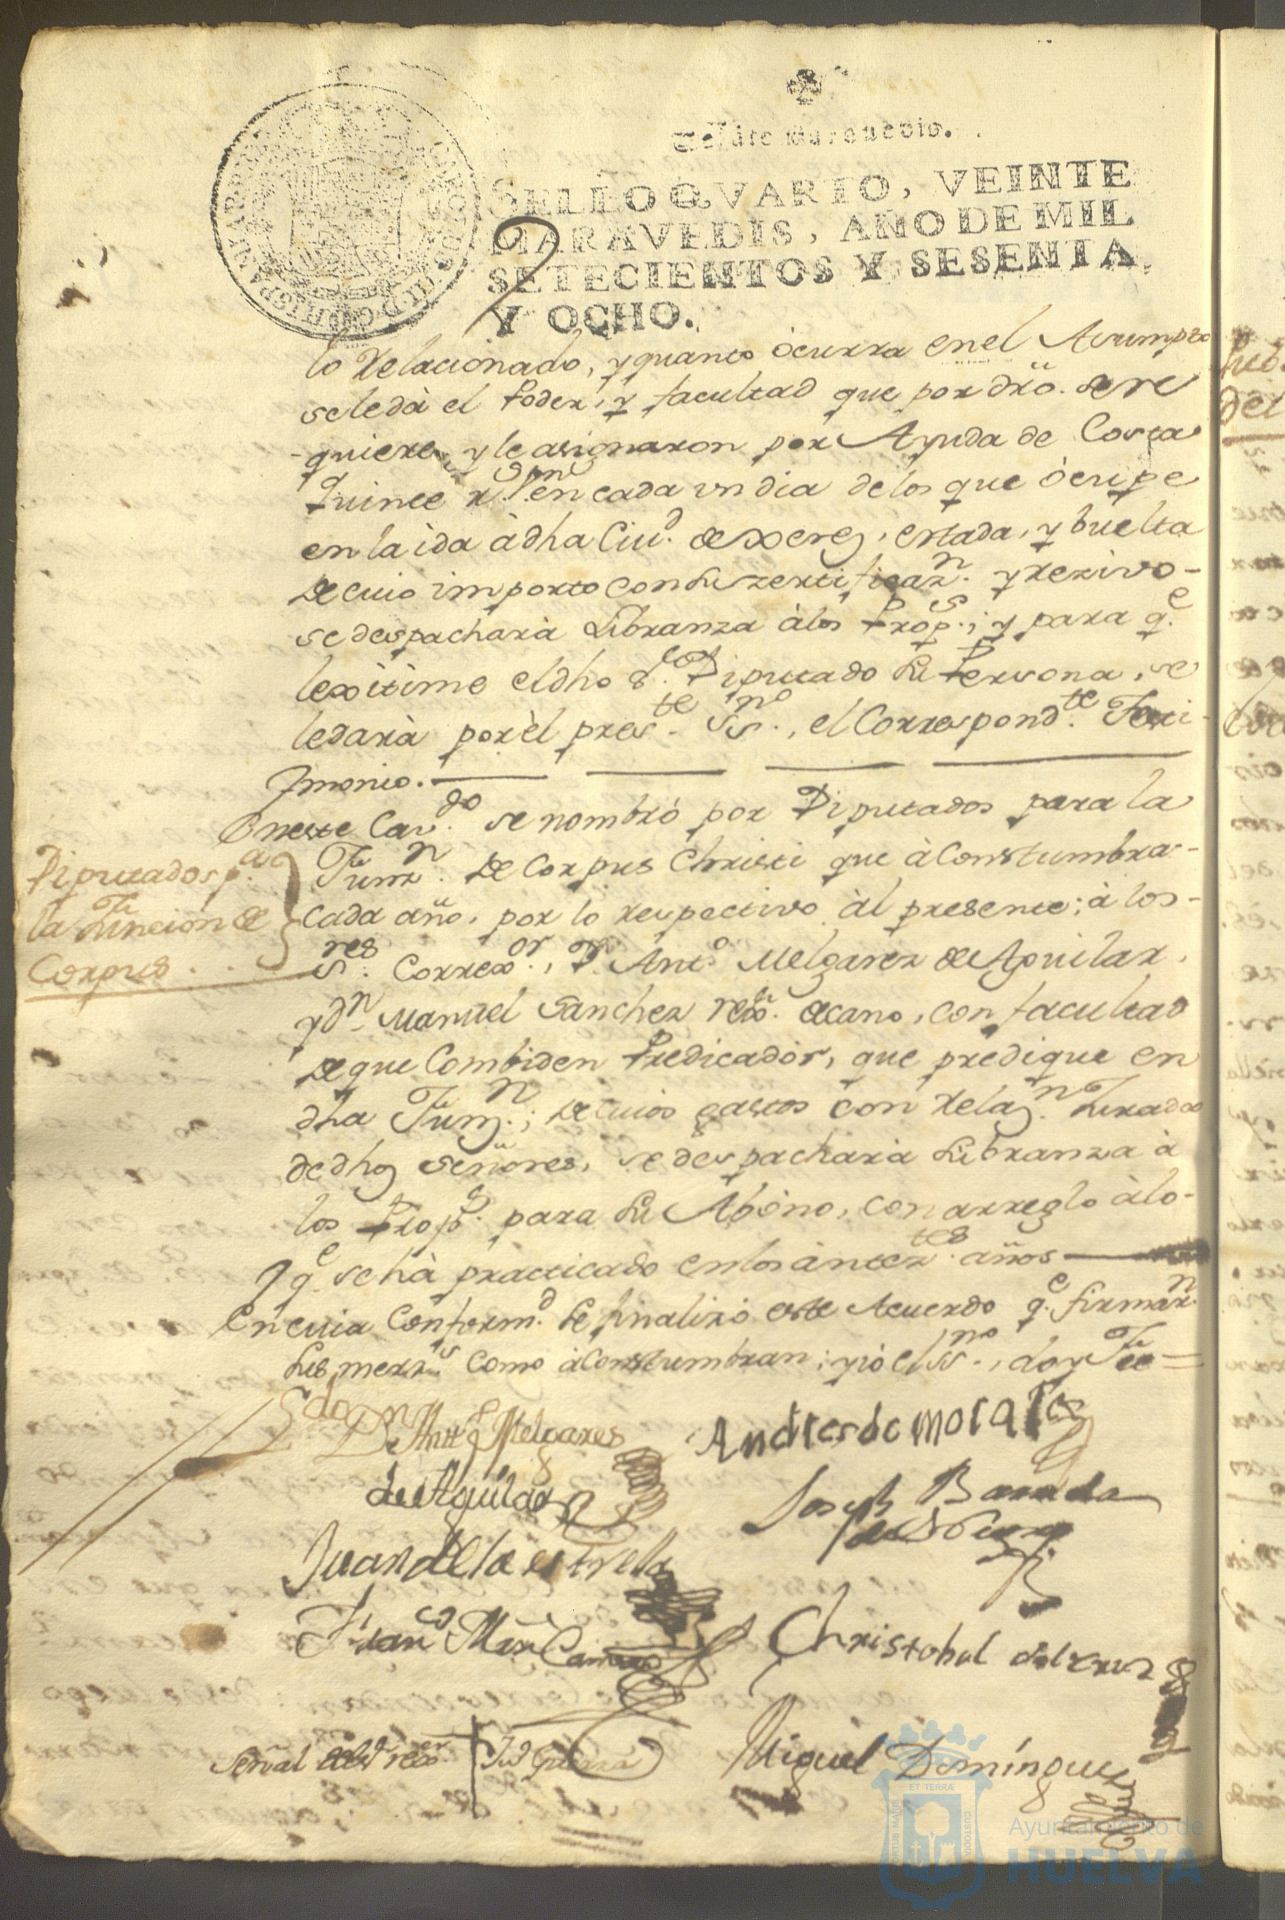 Veinte maravedis.
SELLO QVARTO, VEINTE
MARAVEDIS, AÑO DE MIL
SETECIENTOS Y SESENTA
Y OCHO.
lo Relacionado, y quanto òcurra en el Asumpto
se le dà el Poder, y facultad que por dr̃o. se re
quiere, y le asignaron por Ayuda de Costa
quince rs. vn. en cada vn dia de los que òcupe
en la ida à dha Ciud. de Xerez, estada, y buelta
de cuio importo con su zertificazn. y rezivo-
se despacharà Libranza à los Props.; y para qe.
lexitime el dho Sor. Diputado su Persona, se
le darà por èl preste. SSno., el Correspondte. Testi-
monio.
En este Cavdo. se nombrò por Diputados para la
Funzn. de Corpus Christi que à Constumbra-
cada año, por lo respectivo àl presente; à los-
Sres. Correxor., Dn. Anto. Melgarez de Aguilar,
y Dn. Manuel Sanchez rexor. decano, con facultad
de que Combiden Predicador, que predique en
dha Funzn.; de cuios gastos con Relazn. Jurada
de dhos señores, se despacharà Libranza à
los Props. para su Abono, con arreglo à lo-
qe. se hà practicado en los ànterres. años
En cuia Conformd. se finalizò este Acuerdo qe. firmarn.
sus merzs. como à Constumbran; y iò el SSno., doy Fee =
Diputados pa.
la Función de
Corpus
Ldo. Dn. Antto. Melgares
de Aguilar
Andres de Morales
Joseph Barreda
Juan de la estrella
Franco. Mrn
Christobal de la cruz
Señal del Sr. rexor. Jud Guerra
Miguel Domínguez
ET TERRÆ
CUSTODIA
PORTUS MARIS
Ayuntamiento de
HUELVA